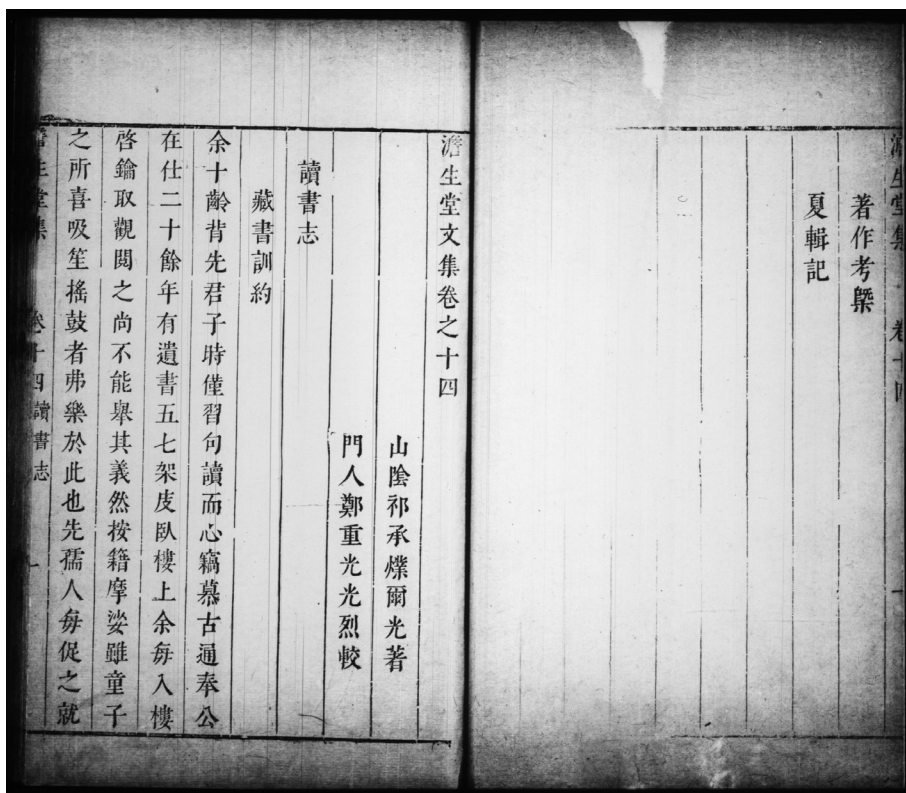 澹生堂集 卷十四
著作考槩
夏輯記
一
澹生堂文集卷之十四
山陰祁承㸁爾光著
門人鄭重光光烈較
讀書志
藏書訓約
余十齡背先君子時僅習句讀而心竊慕古通奉公
在仕二十餘年有遺書五七架庋臥樓上余每入樓
啓鑰取觀閱之尚不能舉其義然按籍摩娑雖童子
之所喜吸笙搖鼓者弗樂於此也先孺人每促之就
澹生堂集 卷十四讀書志 一